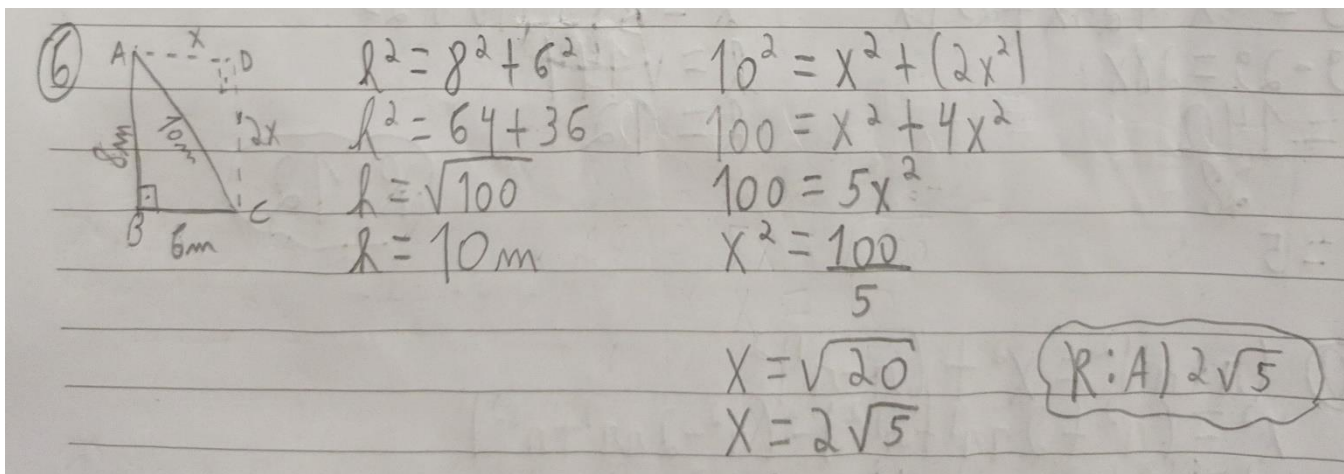 6
A x D
8m 10m 2x
B 6m C
h² = 8² + 6²
h² = 64 + 36
h = √100
h = 10m
10² = x² + (2x²)
100 = x² + 4x²
100 = 5x²
x² = 100/5
x = √20
x = 2√5
R: A) 2√5